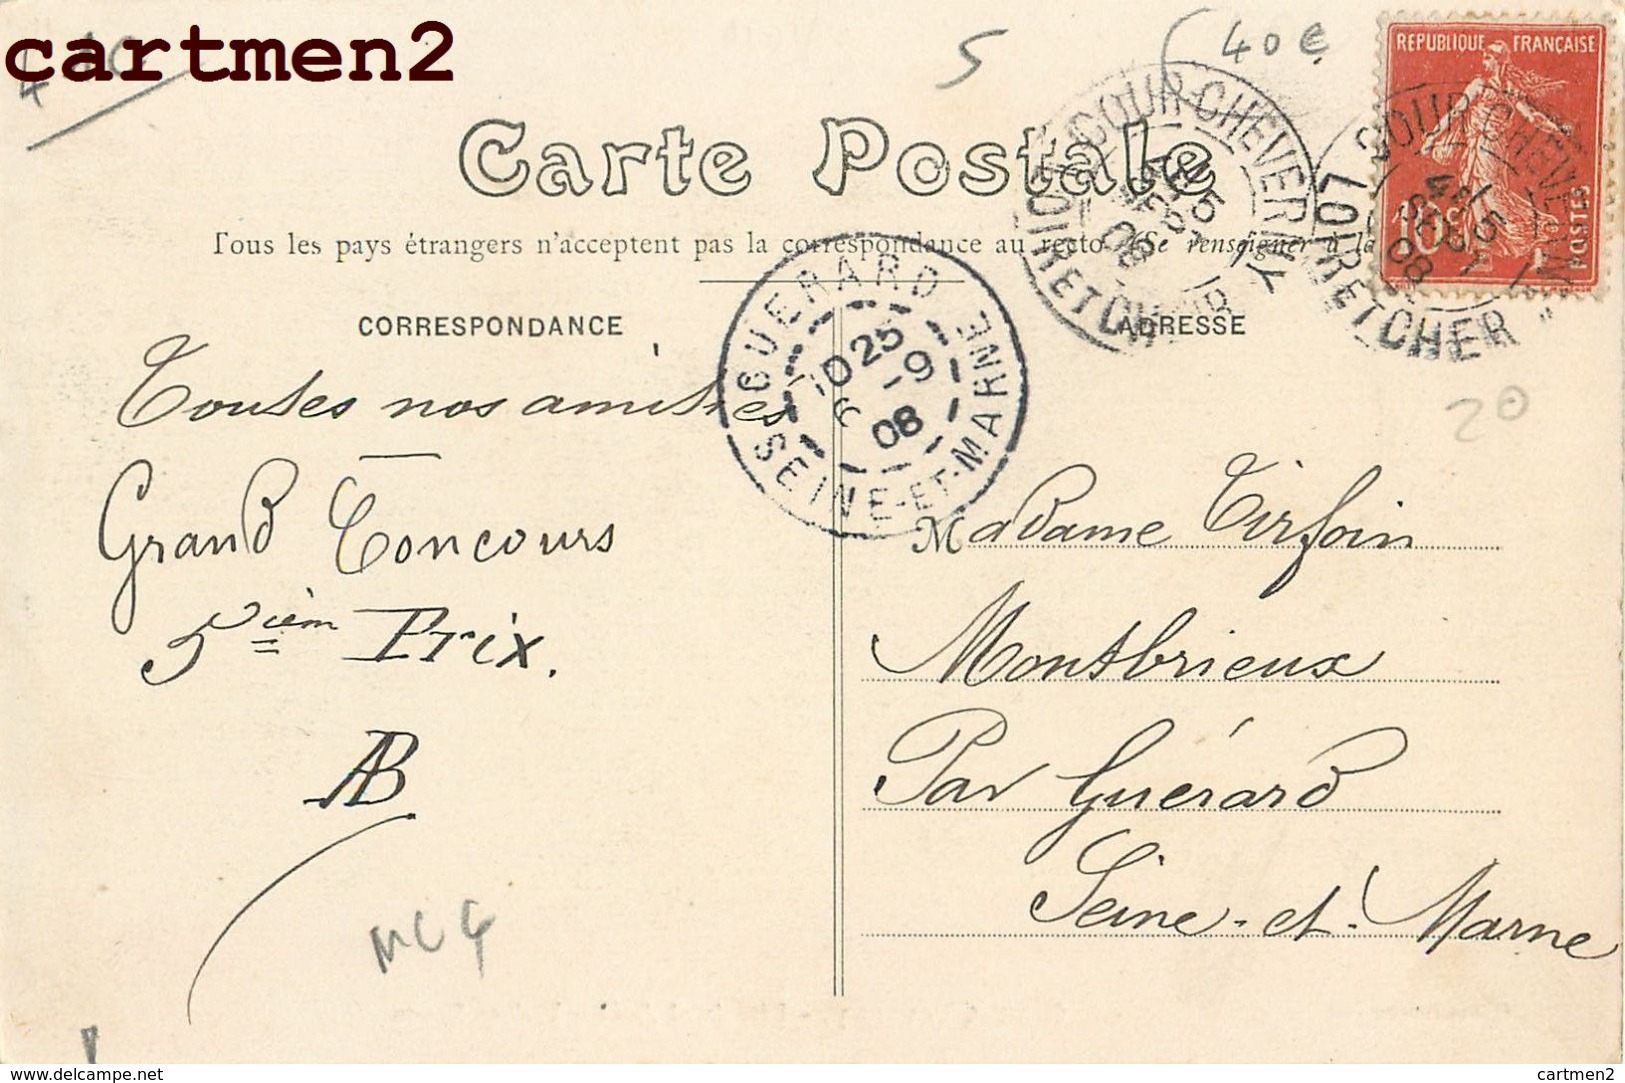 cartmen2
5
40€
REPUBLIQUE FRANÇAISE
10c
POSTES
Carte Postale
Tous les pays étrangers n'acceptent pas la correspondance au recto (Se renseigner à la
COUR-CHEVERNY
LOIR ET CHER
08
COUR-CHEVERNY
LOIR ET CHER
08
GUERARD
SEINE-ET-MARNE
25
9
08
CORRESPONDANCE
ADRESSE
20
Toutes nos amitiés
Grand Concours
5ièm Prix.
AB
Madame Tirfoin
Montbrieux
Par Guérard
Seine-et-Marne
www.delcampe.net
cartmen2